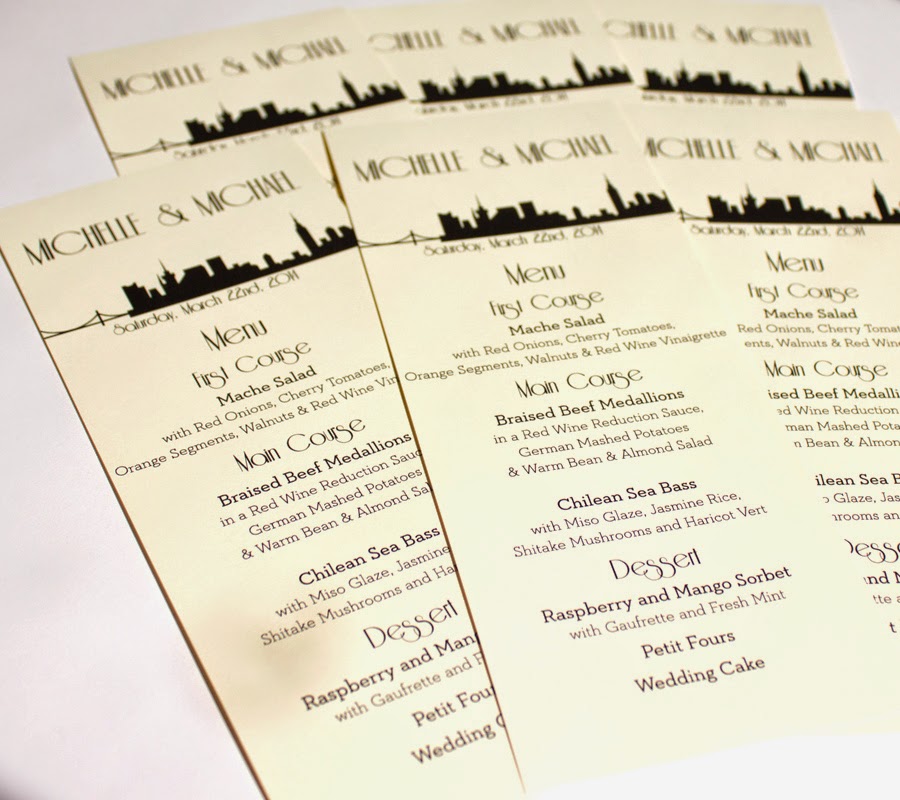 MICHELLE & MICHAEL
Saturday, March 22nd, 2014
CHELLE & MICHAEL
March 22nd, 2014
CHELLE & MICHAEL
March 22nd, 2014
MICHELLE & MICHAEL
Saturday, March 22nd, 2014
Menu
First Course
Mache Salad
with Red Onions, Cherry Tomatoes,
Orange Segments, Walnuts & Red Wine Vin
Main Course
Braised Beef Medallions
in a Red Wine Reduction Sauc
German Mashed Potatoes
& Warm Bean & Almond Sal
Chilean Sea Bass
with Miso Glaze, Jasmine
Shitake Mushrooms and Ha
Dessert
Raspberry and Mang
with Gaufrette and F
Petit Four
Wedding C
MICHELLE & MICHAEL
Saturday, March 22nd, 2014
Menu
First Course
Mache Salad
with Red Onions, Cherry Tomatoes,
Orange Segments, Walnuts & Red Wine Vinaigrette
Main Course
Braised Beef Medallions
in a Red Wine Reduction Sauce,
German Mashed Potatoes
& Warm Bean & Almond Salad
Chilean Sea Bass
with Miso Glaze, Jasmine Rice,
Shitake Mushrooms and Haricot Vert
Dessert
Raspberry and Mango Sorbet
with Gaufrette and Fresh Mint
Petit Fours
Wedding Cake
MICHELLE & MICHAEL
Saturday, March 22nd, 2014
Menu
First Course
Mache Salad
Red Onions, Cherry Tomat
ents, Walnuts & Red Wine
Main Course
ised Beef Medalli
ed Wine Reduction
man Mashed Potat
n Bean & Almond
ilean Sea B
Glaze, Jas
rooms an
Desse
nd M
tte a
t